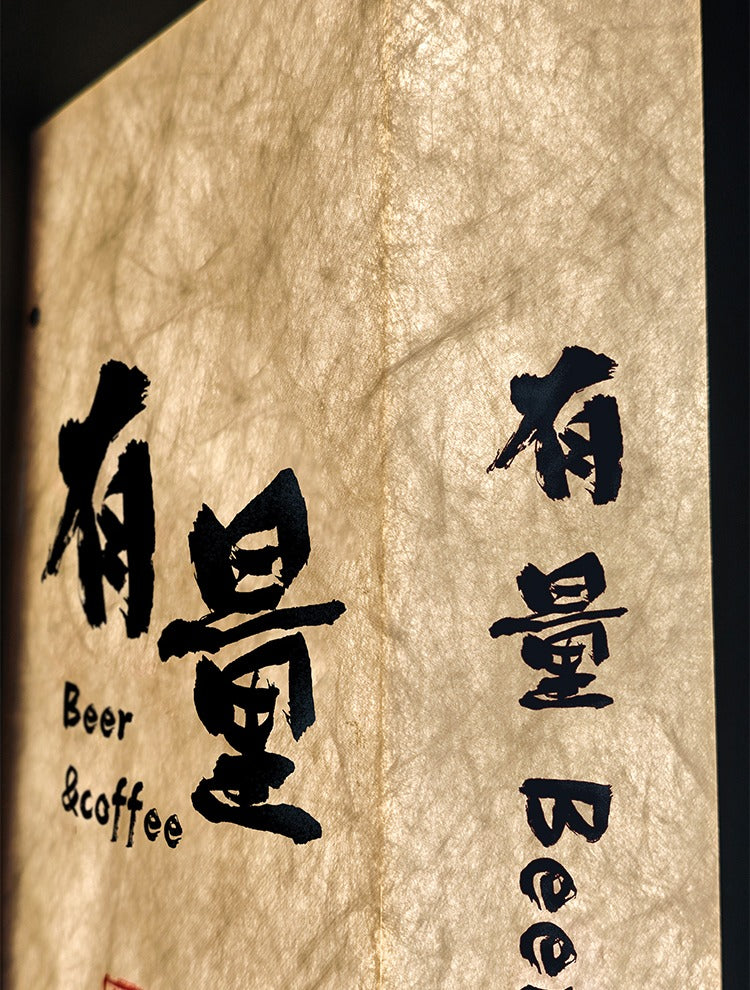 有量
Beer
&coffee
有量 Beer